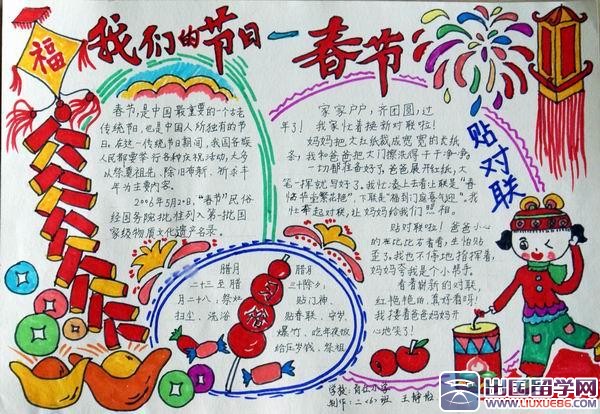 福
我们的节日－春节
春节,是中国最重要的一个古老
传统节日,也是中国人所独有的节
日。在这一传统节日期间,我国各族
人民都要举行各种庆祝活动,大多
以祭奠祖先、除旧布新、祈求丰
年为主要内容。
2006年5月20日,“春节”民俗
经国务院批准列入第一批国
家级物质文化遗产名录。
家家户户,齐团圆,过
年了!我家忙着换新对联啦!
妈妈把大红纸裁成宽宽的长纸
条,我和爸爸把大门擦洗得干干净净,
一切都准备好了。爸爸展开红纸,大
笔一挥就写好了。我忙凑上去看上联是“春
临华堂繁花艳”,下联是“福到门庭喜气盈”。我
忙举起对联,让妈妈给我们照相。
贴对联
贴对联啦!爸爸小心
的在比比方看看,生怕贴
歪了。我也不停地指挥着,
妈妈夸我是个小帮手。
看着崭新的对联,
红艳艳的,真好看呀!
我搂着爸爸妈妈开
心地笑了!
腊月
二十三至腊
月二十八:祭灶
扫尘、洗浴
腊月
三十除夕:
贴门神、
贴春联、守岁、
爆竹、吃年夜饭
给压岁钱、祭祖
制作:二<6>班 王静
出国留学网
WWW.LIUXUE86.COM